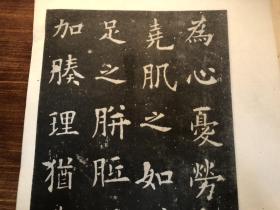 為心憂勞
堯肌之如
足之胼胝
加腠理猶